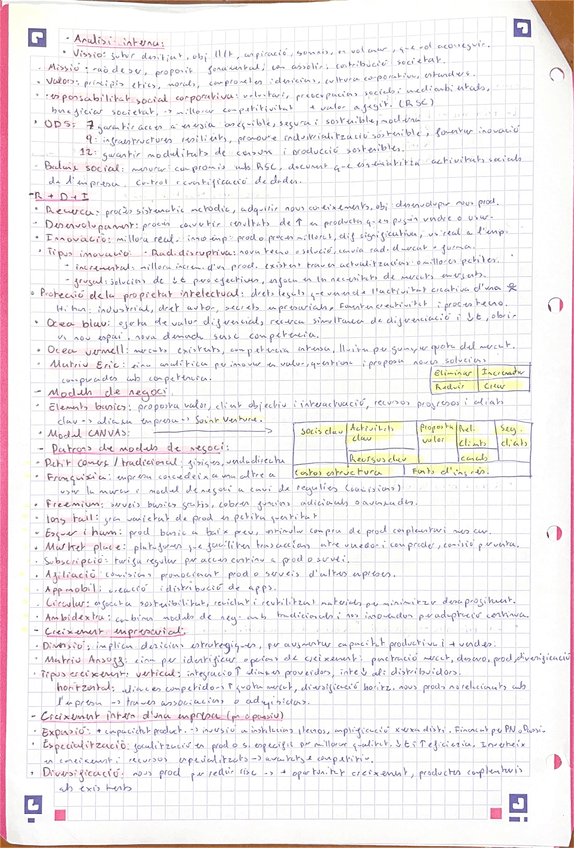 - Analisi interna:
• Visió: futur desitjat, obj ll/t, aspiració, somnis, es vol anar, que vol aconseguir.
• Missió: raó de ser, proposit fonamental, en assolir, contribució societat.
• Valors: principis etics, morals, compromesos decisions, cultura corporativa, estandars.
• responsabilitat social corporativa: voluntari, preocupacions socials i mediambientals,
beneficiar societat, → millorar competitivitat + valor afegit. (RSC)
• ODS: 7 garantir acces a energia assequible, segura i sostenible, moderna
9: infrastructures resilients, promoure industrialització sostenible, fomentar innovació
12: garantir modalitats de consum i producció sostenibles.
- Balanç social: mesurar compromis amb RSC, document que es sintetitza activitats socials
de l'empresa. Control i cuantificació de dades.
- R + D + I
• Recerca: procés sistematic metodic, adquirir nous coneixements, obj: desenvolupar nous prod.
• Desenvolupament: procés convertir resultats de ↑ en productes q es pugin vendre o usar.
• Innovació: millora real. prod o proces millorat, dif significativa, us real a l'emp.
• Tipus innovació - Rad. disruptiva: nova tecno o solució, canvia rad. el mercat + forma.
- incremental: millora increm. d'un prod. existent traves actualitzacions o millores petites.
- frugal: solucions de ↓ € pro efectives, enfoca en la necessitats de mercats emergents.
• Protecció de la propietat intelectual: drets legals que venen de l'activitat creativa d'una
Hi han: industrial, dret autor, secrets empresarials, Fomenta creativitat i proces tecno.
• Ocea blau: oferta de valor diferencial, recerca simultanea de diferenciació i ↓ €, obrir
un nou espai, nova demanda sense competencia.
• Ocea vermell: mercats existents, competencia intensa, lluita per guanyar quota del mercat.
• Matriu Eric: eina analitica per innovar en valor, questiona i proposa noves solucions
comparades amb competencia.
Eliminar Incrementar
Reduir Crear
- Models de negoci
• Elements basics: proposta valor, client objectiu i interactuació, recursos progresos i aliats
clau → aliança empresa → Joint Venture.
• Model CANVAS: →
Socis clau Activitats clau proposta valor Reli. clients Seg. clients
Recursos clau canals
costos estructura Fonts d'ingrés.
- Patrons de models de negoci:
• Petit comerç / tradicional: fisiques, venda directa
• Franquicia: empresa concedeix a una altre a
usar la marca i model de negoci a canvi de regalies (comissions)
• Freemium: serveis basics gratis, cobren funcions adicionals o avançades.
• long tail: gran varietat de prod en petita quantitat
• Esquer i ham: prod basic a baix preu, estimular compra de prod complentari més car.
• Market place: plataformes que faciliten transaccions entre venedor i comprador, comisió per venta.
• Subscripció: tarifa regular per acces continu a prod o servei.
• Afiliació: comisions promocionant prod o serveis d'altres empreses.
• App mobil: creació i distribució de apps.
• Circular: enfocada sostenibilitat, reciclant i reutilitzant materials per minimitzar desaprofitament.
• Ambidextra: combina models de neg. amb tradicionals i nos innovadors per adaptació continua.
- Creixement empresarial
• Diversió: implica decisions estrategiques, per augmentar capacitat productiva i + vendes.
• Matriu Ansoff: eina per identificar opcions de creixement: penetració mercat, desenv. prod, diversificació
• Tipus creixement: vertical: integració ↑ aliances proveidors, inte ↓ al: distribuidors.
horitzontal: aliances competidors ↑ quota mercat, diversificació horitz. nous prods no relacionats amb
l'empresa → traves associacions o adquisicions.
- Creixement intern d'una empresa (pn o passiu)
• Expansió: + capacitat product. → inversió a instalacions, amplificació xarxa distri. Financat per PN o Passi.
• Especialització: focalització en prod o s. especific per millorar qualitat. ↓ € i ↑ eficiencia. Inverteix
en coneixement i recursos especialitzats → avantatge competitiu.
• Diversificació: nous prod per reduir risc → + oportunitat creixement, productes complentaris
als existents